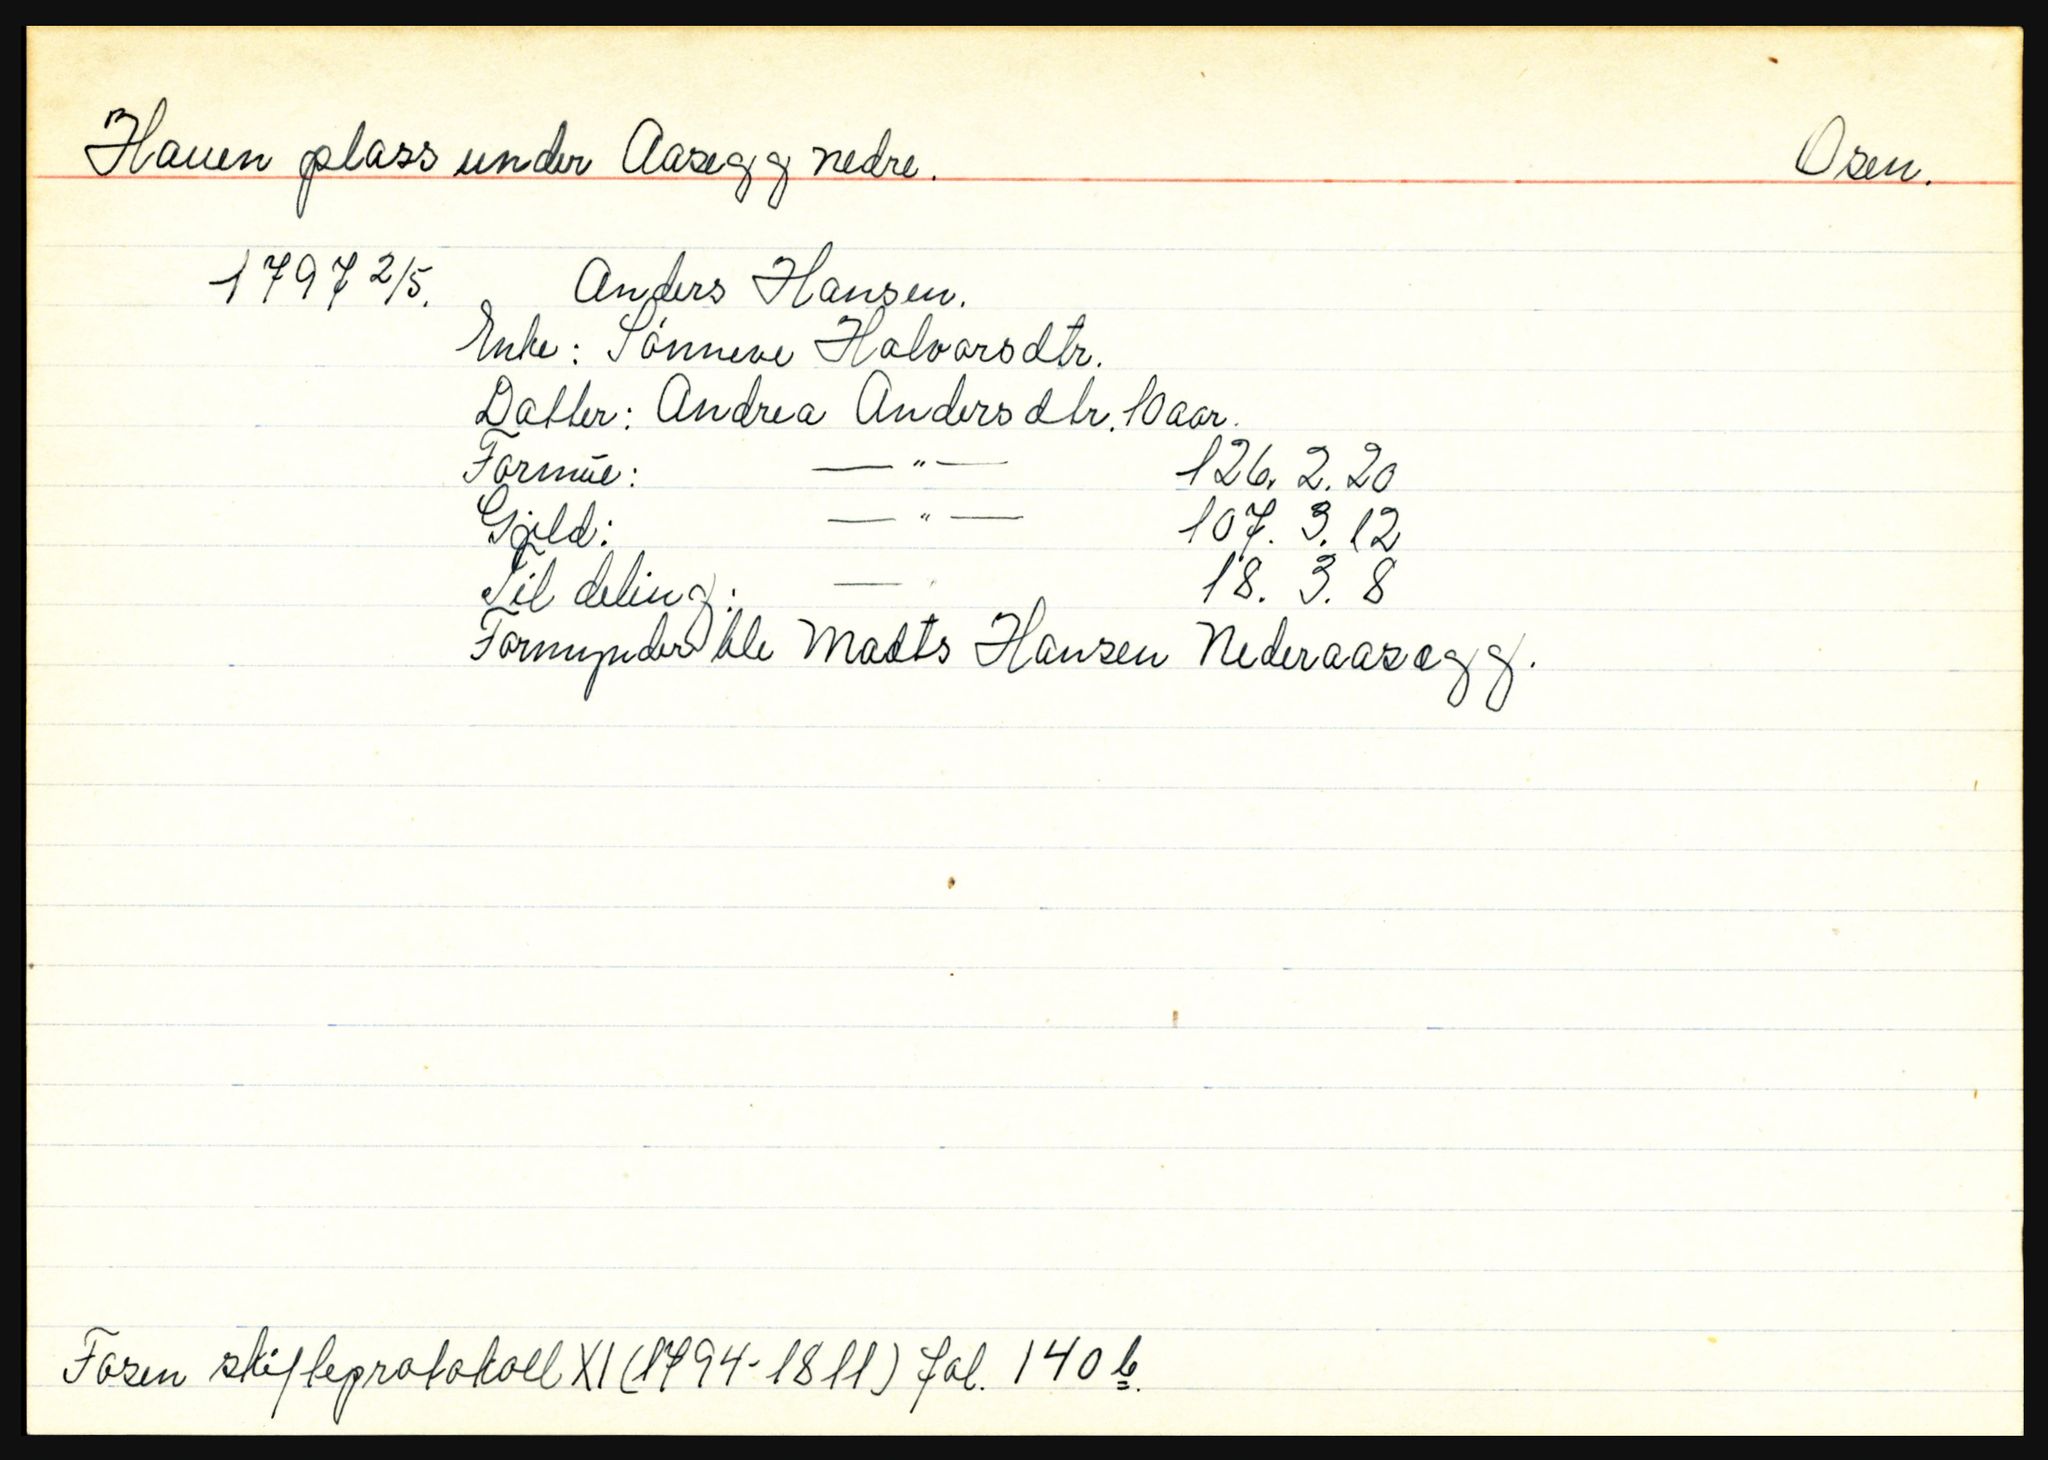 Hauen plass under Aasegg nedre. Osen.
1797 2/5. Anders Hansen.
Enke: Sønneve Halvorsdtr.
Datter: Andrea Andersdtr. 10 aar.
Formue: — " — 126. 2. 20
Gjeld: — " — 107. 3. 12
Til deling: — 18. 3. 8
Formynder ble Madts Hansen Nederaasegg.
Fosen skifteprotokoll XI (1794-1811) fol. 140 b.